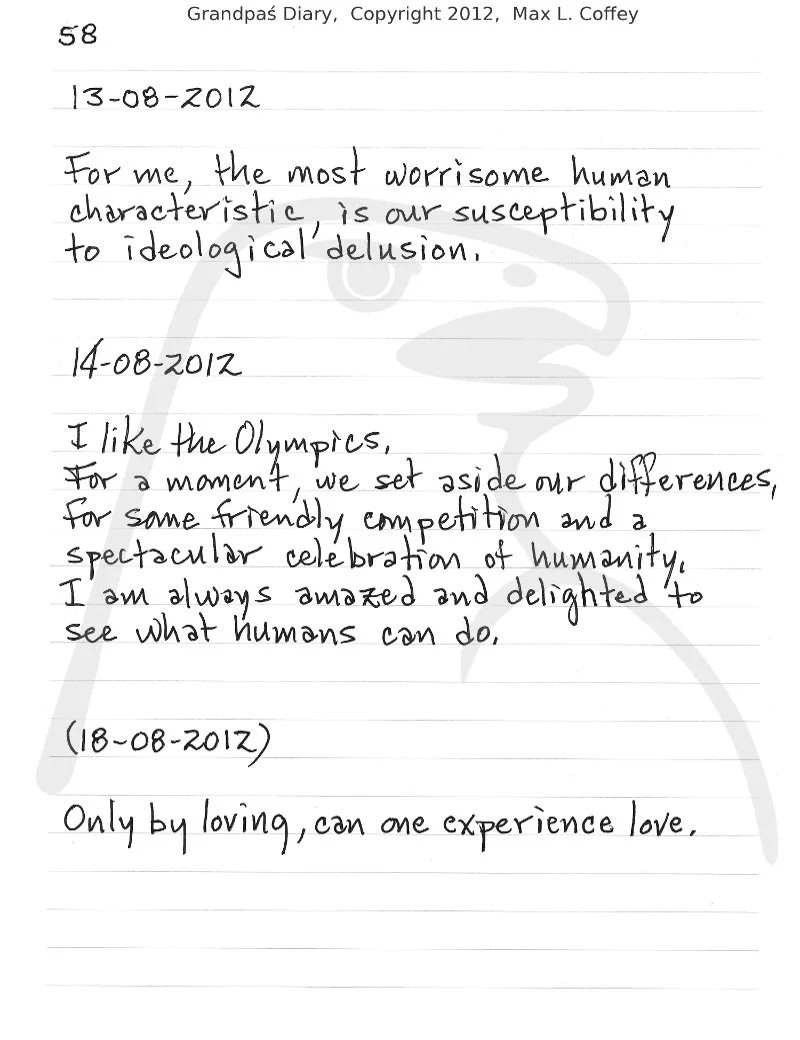 Grandpaś Diary, Copyright 2012, Max L. Coffey
58
13-08-2012
For me, the most worrisome human
characteristic, is our susceptibility
to ideological delusion.
14-08-2012
I like the Olympics.
For a moment, we set aside our differences,
for some friendly competition and a
spectacular celebration of humanity.
I am always amazed and delighted to
see what humans can do.
(18-08-2012)
Only by loving, can one experience love.